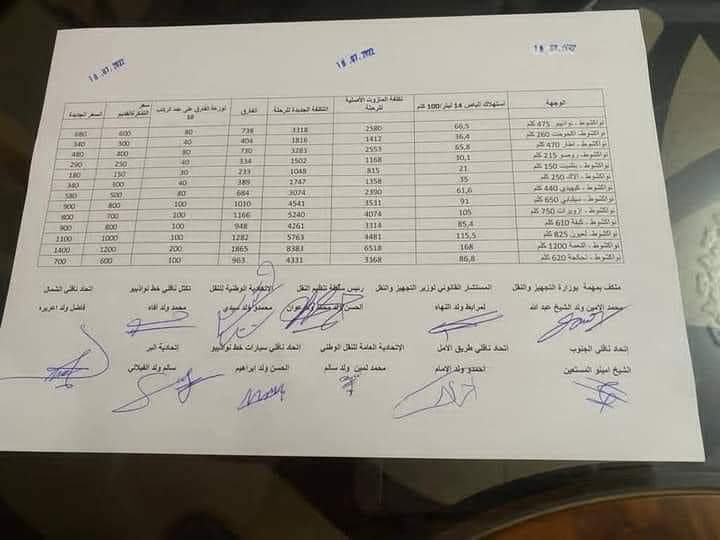 18.07.2022
18.07.2022
18.07.2022
الوجهة استهلاك الباص 14 ليتر/100 كلم تكلفة المازوت الأصلية للرحلة التكلفة الجديدة للرحلة الفارق توزعة الفارق على عدد الركاب 18 سعر التذكرة القديم السعر الجديدة
نواكشوط - نواذيبو 475 كلم 66,5 2580 3318 738 80 600 680
نواكشوط - اكجوجت 260 كلم 36,4 1412 1816 404 40 300 340
نواكشوط - اطار 470 كلم 65,8 2553 3283 730 80 400 480
نواكشوط - روصو 215 كلم 30,1 1168 1502 334 40 250 290
نواكشوط - بتلميت 150 كلم 21 815 1048 233 30 150 180
نواكشوط - الاك 250 كلم 35 1358 1747 389 40 300 340
نواكشوط - كيهيدي 440 كلم 61,6 2390 3074 684 80 500 580
نواكشوط - سيلبابي 650 كلم 91 3531 4541 1010 100 800 900
نواكشوط - ازويرات 750 كلم 105 4074 5240 1166 100 700 800
نواكشوط - كيفة 610 كلم 85,4 3314 4261 948 100 800 900
نواكشوط - لعيون 825 كلم 115,5 4481 5763 1282 100 1000 1100
نواكشوط - النعمة 1200 كلم 168 6518 8383 1865 200 1200 1400
نواكشوط - تجكجة 620 كلم 86,8 3368 4331 963 100 600 700
مكلف بمهمة بوزارة التجهيز والنقل المستشار القانوني لوزير التجهيز والنقل رئيس سلطة تنظيم النقل الإتحادية الوطنية للنقل تكتل ناقلي خط نواذيبو اتحاد ناقلي الشمال
محمد الامين ولد الشيخ عبد الله لمرابط ولد التهاه الحسن ولد عوان محمدو ولد سيدي محمد ولد أفاه فاضل ولد اعريره
إتحاد ناقلي الجنوب إتحاد ناقلي طريق الأمل الإتحادية العامة للنقل الوطني اتحاد ناقلي سيارات خط نواذيبو إتحادية البر
الشيخ امينو المستعين احمدو ولد الإمام محمد لمين ولد سالم الحسن ولد إبراهيم سالم ولد الفيلالي